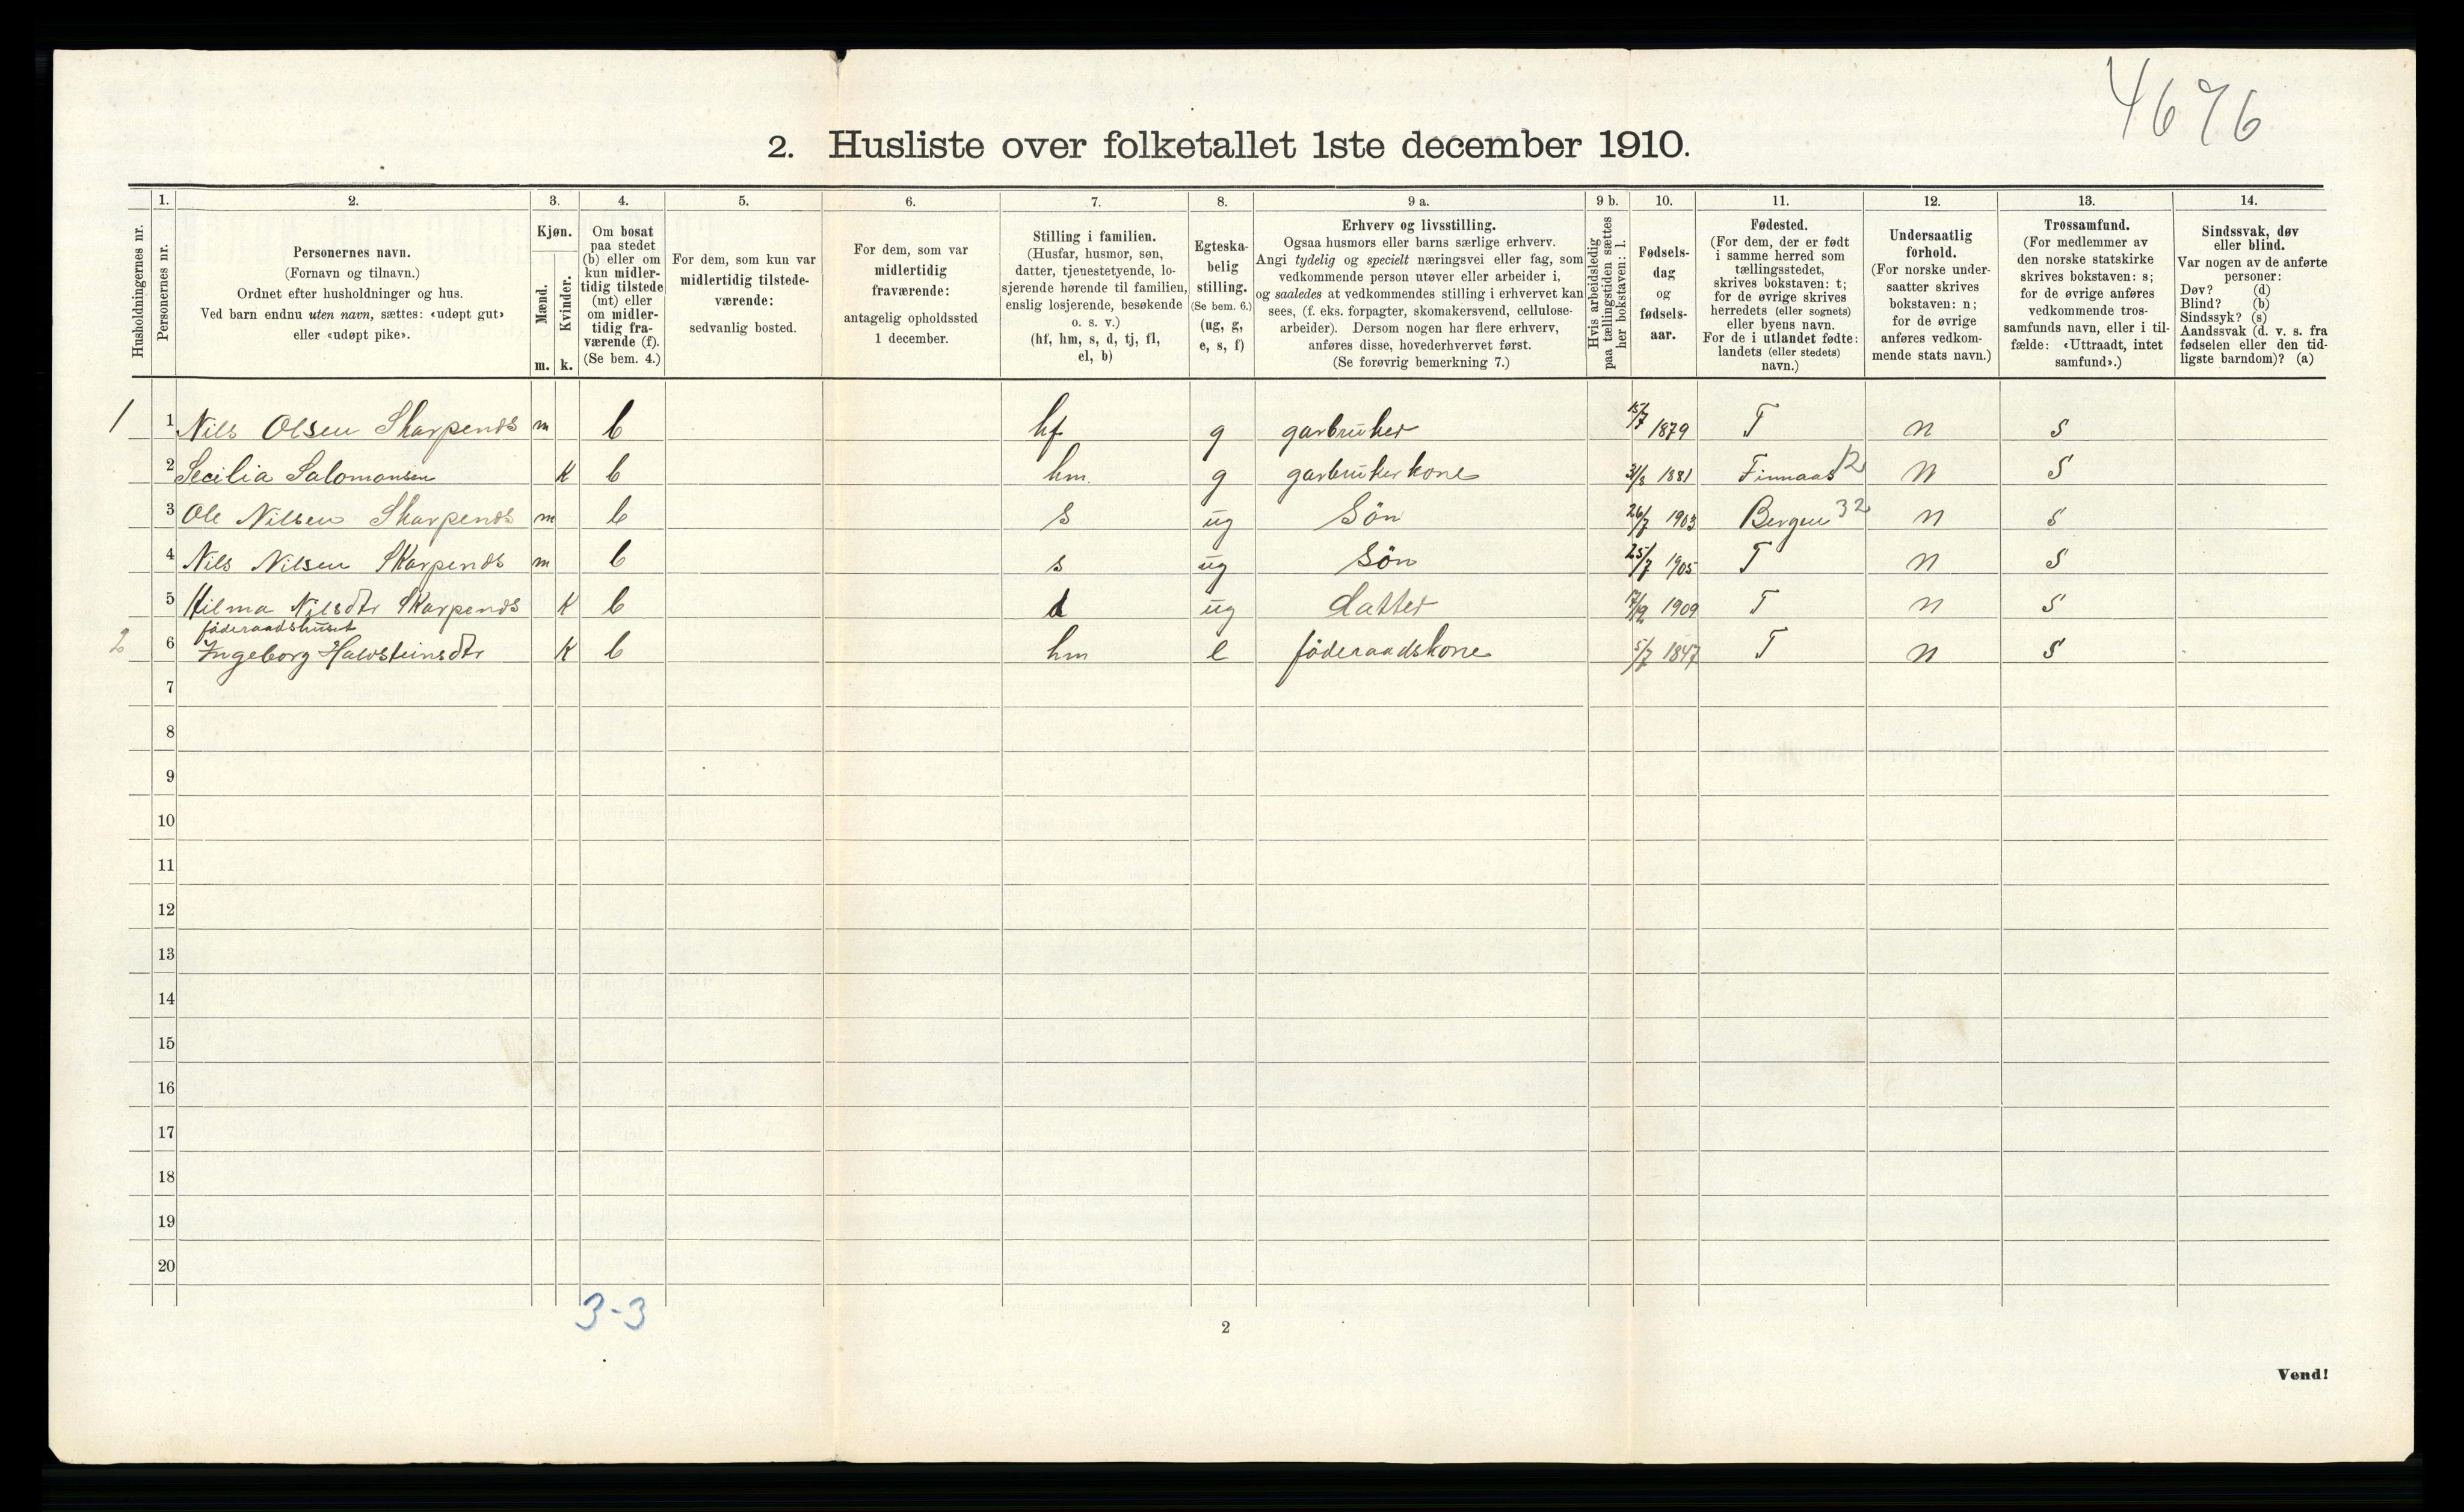 4676
2. Husliste over folketallet 1ste december 1910.
Husholdningernes nr.
1.
Personernes nr.
2.
Personernes navn.
(Fornavn og tilnavn.)
Ordnet efter husholdninger og hus.
Ved barn endnu uten navn, sættes: «udøpt gut»
eller «udøpt pike».
3.
Kjøn.
Mænd.
Kvinder.
m. k.
4.
Om bosat
paa stedet
(b) eller om
kun midler-
tidig tilstede
(mt) eller
om midler-
tidig fra-
værende (f).
(Se bem. 4.)
5.
For dem, som kun var
midlertidig tilstede-
værende:
sedvanlig bosted.
6.
For dem, som var
midlertidig
fraværende:
antagelig opholdssted
1 december.
7.
Stilling i familien.
(Husfar, husmor, søn,
datter, tjenestetyende, lo-
sjerende hørende til familien,
enslig losjerende, besøkende
o. s. v.)
(hf, hm, s, d, tj, fl,
el, b)
8.
Egteska-
belig
stilling.
(Se bem. 6.)
(ug, g,
e, s, f)
9 a.
Erhverv og livsstilling.
Ogsaa husmors eller barns særlige erhverv.
Angi tydelig og specielt næringsvei eller fag, som
vedkommende person utøver eller arbeider i,
og saaledes at vedkommendes stilling i erhvervet kan
sees, (f. eks. forpagter, skomakersvend, cellulose-
arbeider). Dersom nogen har flere erhverv,
anføres disse, hovederhvervet først.
(Se forøvrig bemerkning 7.)
9 b.
Hvis arbeidsledig
paa tællingstiden sættes
her bokstaven: l.
10.
Fødsels-
dag
og
fødsels-
aar.
11.
Fødested.
(For dem, der er født
i samme herred som
tællingsstedet,
skrives bokstaven: t;
for de øvrige skrives
herredets (eller sognets)
eller byens navn.
For de i utlandet fødte:
landets (eller stedets)
navn.)
12.
Undersaatlig
forhold.
(For norske under-
saatter skrives
bokstaven: n;
for de øvrige
anføres vedkom-
mende stats navn.)
13.
Trossamfund.
(For medlemmer av
den norske statskirke
skrives bokstaven: s;
for de øvrige anføres
vedkommende tros-
samfunds navn, eller i til-
fælde: «Uttraadt, intet
samfund».)
14.
Sindssvak, døv
eller blind.
Var nogen av de anførte
personer:
Døv? (d)
Blind? (b)
Sindssyk? (s)
Aandssvak (d. v. s. fra
fødselen eller den tid-
ligste barndom)? (a)
1 1 Nils Olsen Skarpenes m b hf g garbruker 15/7 1879 T n s
2 Secilia Salomonsen K b hm. g garbruker kone 31/8 1881 Finnaas 12 n s
3 Ole Nilsen Skarpenes m b s ug Sön 26/7 1903 Bergen 32 n s
4 Nils Nilsen Skarpenes m b s ug Sön 25/7 1905 T n s
5 Hilma Nilsdtr Skarpenes K b d ug datter 17/9 1909 T n s
föderaadshuset
2 6 Ingeborg Halvsteinsdtr K b hm e föderaadskone 5/7 1847 T n s
7
8
9
10
11
12
13
14
15
16
17
18
19
20
3-3
2
Vend!